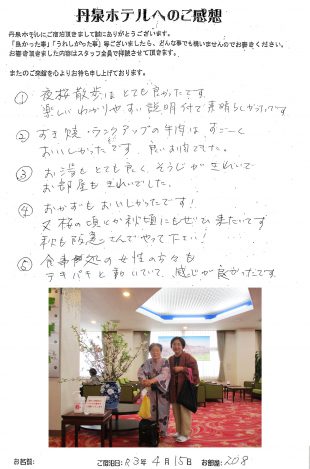 丹泉ホテルへのご感想
丹泉ホテルにご宿泊頂きまして誠にありがとうございます。
「良かった事」「うれしかった事」等ございましたら、どんな事でも構いませんのでお書きください。
お書き頂きました内容はスタッフ全員で共有させて頂きます。
またのご来館を心よりお待ち申し上げております。
① 夜桜散歩はとても良かったです。
楽しいわかりやすい説明付で素晴らしかったです
② すき焼・ランクアップの牛肉はすごーく
おいしかったです。良いお肉でした。
③ お湯もとても良く、そうじがきれいで
お部屋もきれいでした。
④ おかずもおいしかったです!
又桜の頃とか秋頃にもぜひ来たいです
秋も阪急さんでやって下さい!
⑤ 食事処の女性の方々も
テキパキと動いていて、感じが良かったです
お名前:
ご宿泊日: R3年 4月 15日
お部屋: 208